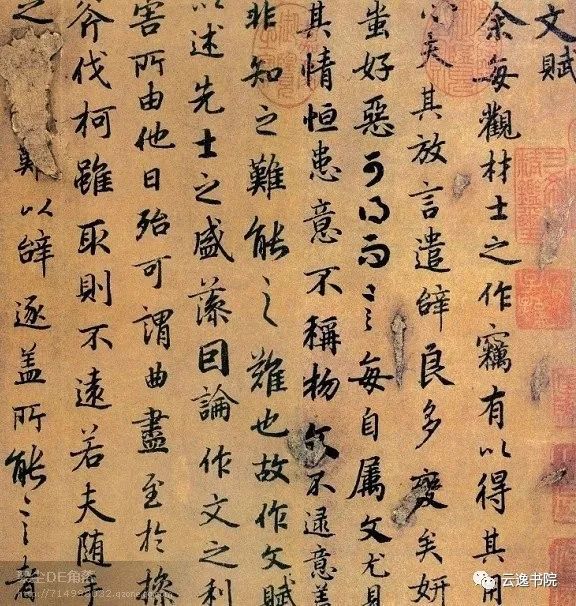 文賦
余每觀材士之作竊有以得其用
心夫其放言遣辭良多變矣妍
蚩好惡可得而言每自属文尤見
其情恒患意不稱物文不逮意盖
非知之難能之難也故作文賦
以述先士之盛藻因論作文之利
害所由他日殆可謂曲盡至於操
斧伐柯雖取則不遠若夫随手
之難以辭逐盖所能言者
云逸书院